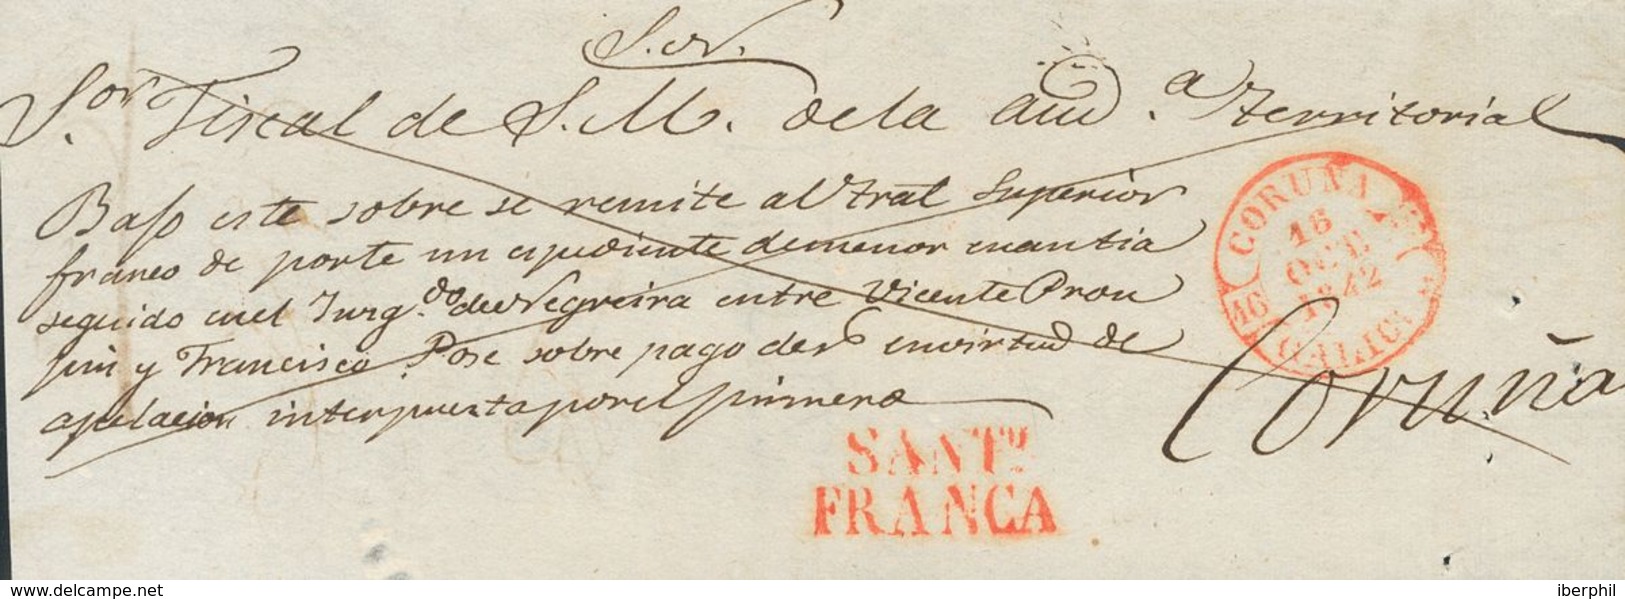 S.or
S.or Fiscal de S. M. de la Aud.a Territorial
Bajo este sobre se remite al Tral Superior
franco de porte un espediente de menor cuantia
seguido en el Juzg.do de Negreira entre Vicente
jin y Francisco Pose sobre pago de en virtud de
apelacion interpuesta por el primero
Coruña
CORUÑA
16
OCT
1842
16 GALICIA
SANT.º
FRANCA
delcampe.net
iberphil